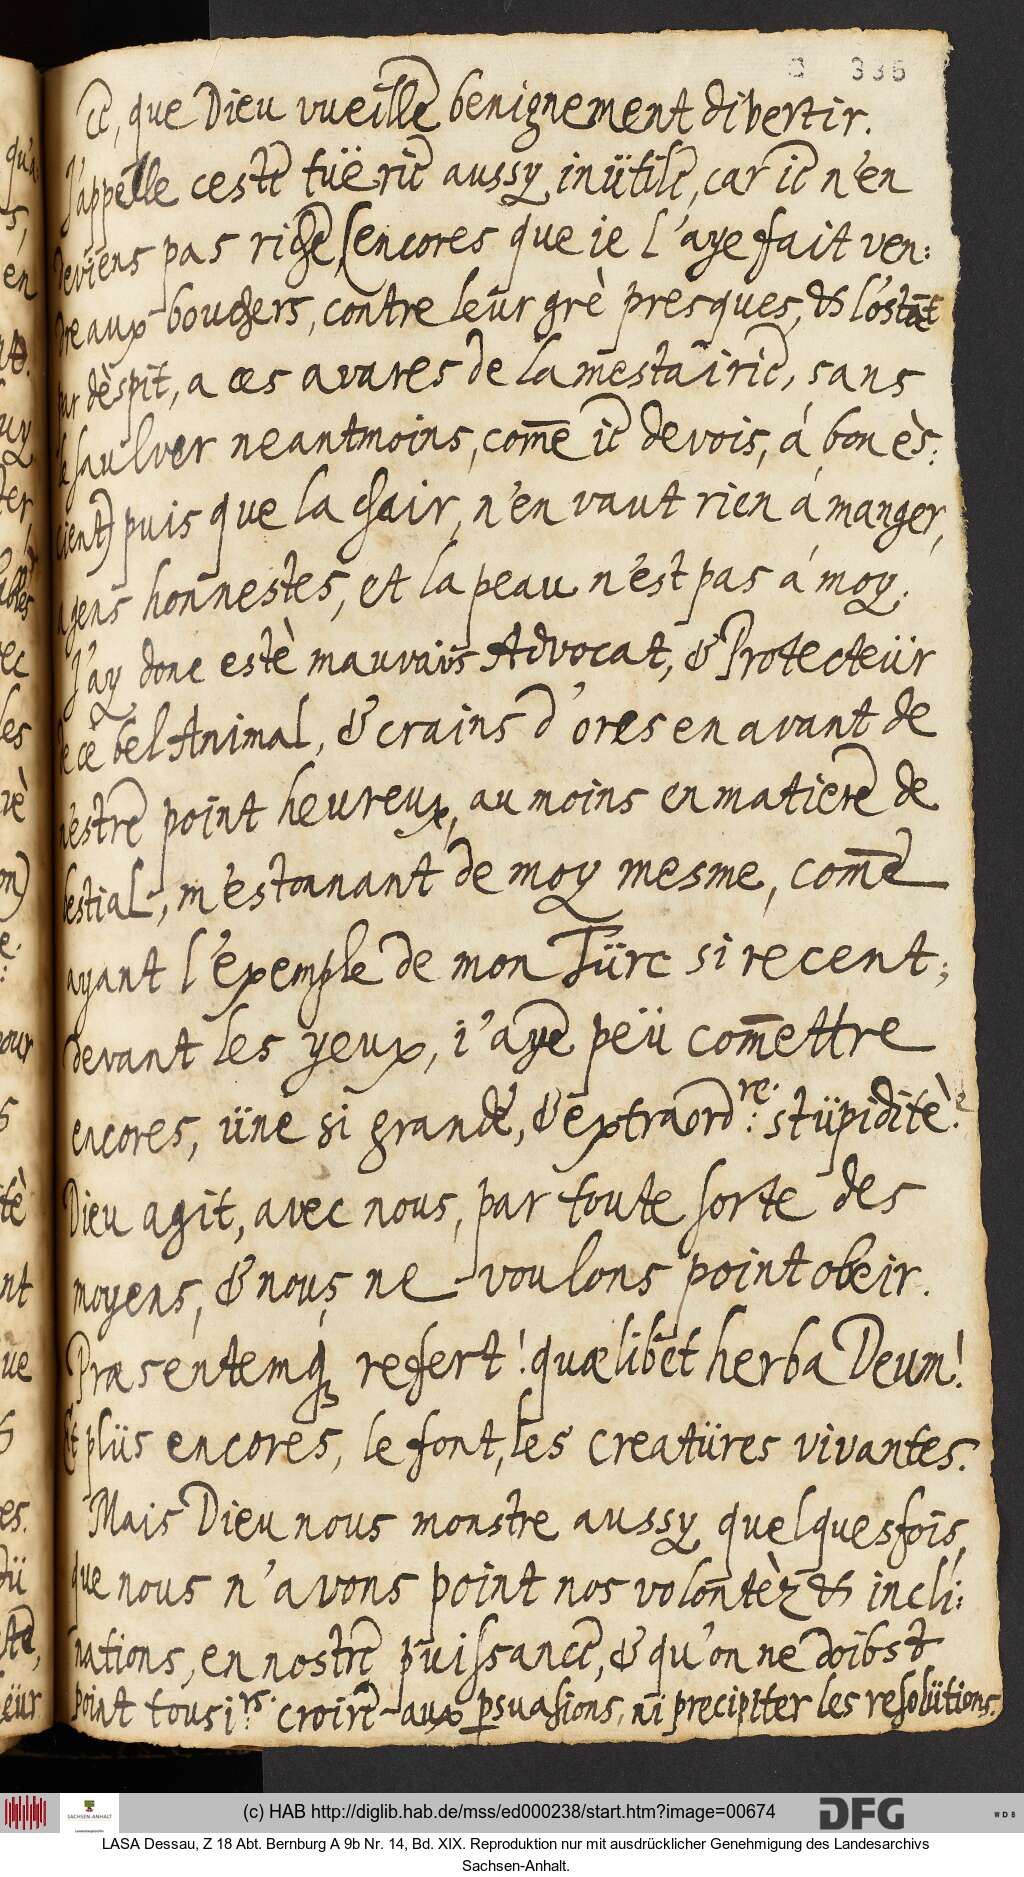 336
ie, que Dieu vueille benignement divertir.
J'appelle ceste tüerie aussy inütile, car ie n'en
deviens pas riche, (encores que ie l'aye fait ven:
dre aux bouchers, contre leur grè presques, & l'ostàt
par dèspit, a ces avares de la mestairie, sans
le saulver neantmoins, com̄e ie devois, á bon ès:
cient) puis que la chair, n'en vaut rien á manger,
a gens honnestes, et la peau n'est pas á moy.
J'ay donc estè mauvais Advocat, & Protecteür
de ce bel Animal, & crains d'ores en avant de
n'estre point heureux, au moins en matiere de
bestial, m'estonnant de moy mesme, com̄e
ayant l'exemple de mon Türc si recent;
devant les yeux, i'aye peü com̄ettre
encores, üne si grande, & extraord:re. stüpiditè.
Dieu agit, avec nous, par toute sorte des
moyens, & nous, ne voulons point obeir.
Præsentemq₃ refert! quælibet herba Deum!
Et plüs encores, le font, les creatüres vivantes.
Mais Dieu nous monstre aussy quelquesfois,
que nous n'avons point nos volontèz & incli:
nations, en nostre puissance, & qu'on ne doibst
point tousi:rs. croire aux psuasions, ni precipiter les resolütions.
(c) HAB http://diglib.hab.de/mss/ed000238/start.htm?image=00674
SACHSEN-ANHALT
DFG
WDB
LASA Dessau, Z 18 Abt. Bernburg A 9b Nr. 14, Bd. XIX. Reproduktion nur mit ausdrücklicher Genehmigung des Landesarchivs
Sachsen-Anhalt.